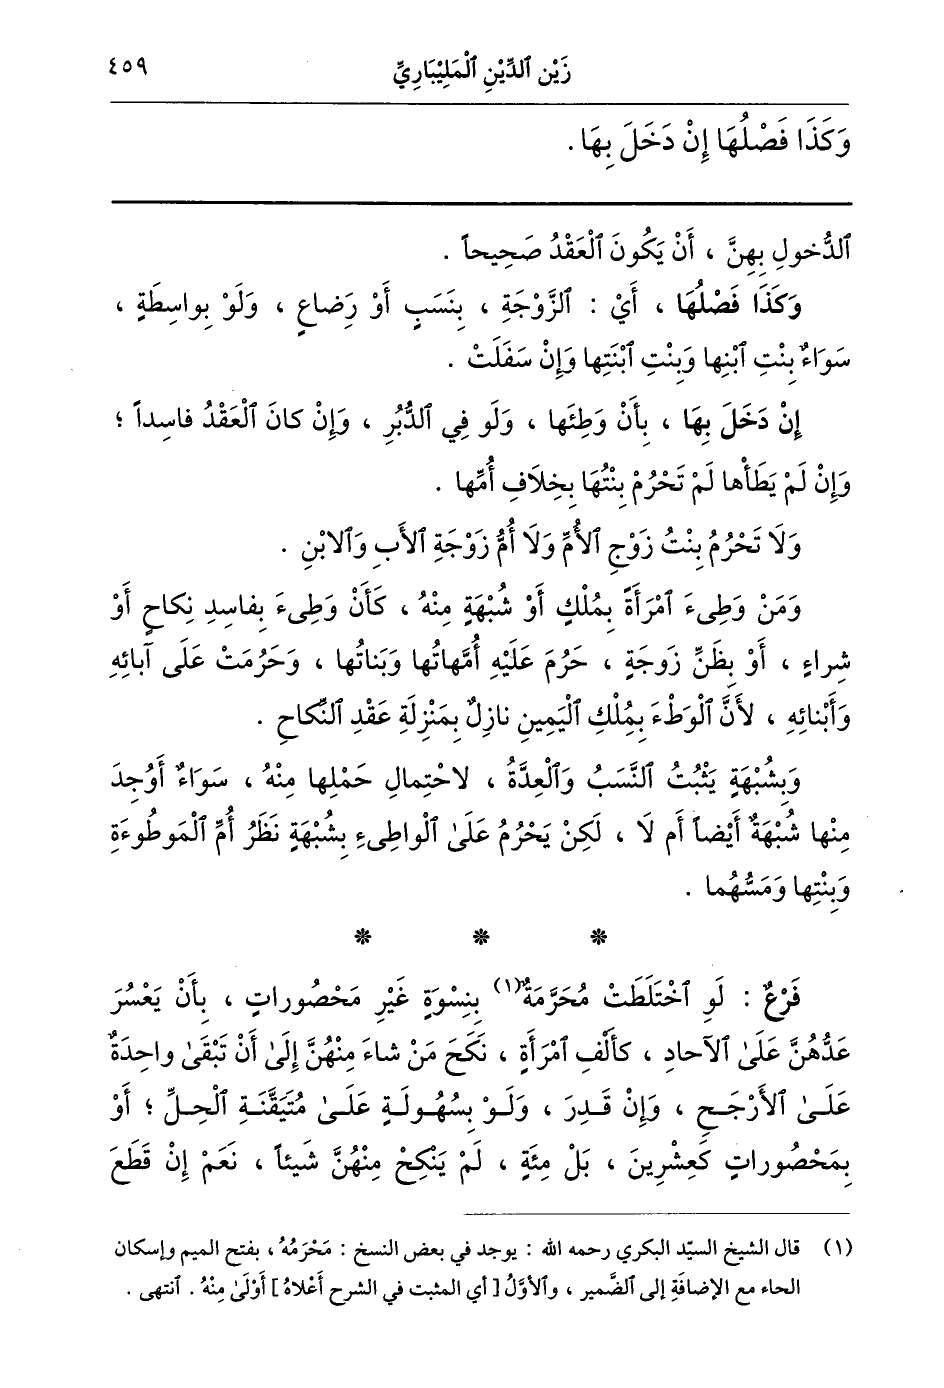 زَيْن ٱلدِّيْنِ ٱلْمَلِيْبَارِيِّ ٤٥٩
وَكَذَا فَصْلُهَا إِنْ دَخَلَ بِهَا .
ٱلدُّخولِ بِهِنَّ ، أَنْ يَكُونَ ٱلْعَقْدُ صَحِيحاً .
وَكَذَا فَصْلُهَا ، أَيْ : ٱلزَّوْجَةِ ، بِنَسَبٍ أَوْ رَضاعٍ ، وَلَوْ بِواسِطَةٍ ،
سَوَاءٌ بِنْتِ ٱبْنِها وَبِنْتِ ٱبْنَتِها وَإِنْ سَفَلَتْ .
إِنْ دَخَلَ بِهَا ، بِأَنْ وَطِئَها ، وَلَو فِي ٱلدُّبُرِ ، وَإِنْ كانَ ٱلْعَقْدُ فاسِداً ؛
وَإِنْ لَمْ يَطَأْها لَمْ تَحْرُمْ بِنْتُهَا بِخِلَافِ أُمِّها .
وَلَا تَحْرُمُ بِنْتُ زَوْجِ ٱلأُمِّ وَلَا أُمُّ زَوْجَةِ ٱلأَبِ وَٱلابْنِ .
وَمَنْ وَطِىءَ ٱمْرَأَةً بِمُلْكٍ أَوْ شُبْهَةٍ مِنْهُ ، كَأَنْ وَطِىءَ بِفاسِدِ نِكاحٍ أَوْ
شِراءٍ ، أَوْ بِظَنِّ زَوجَةٍ ، حَرُمَ عَلَيْهِ أُمَّهاتُها وَبَناتُها ، وَحَرُمَتْ عَلَى آبائِهِ
وَأَبْنائِهِ ، لأَنَّ ٱلْوَطْءَ بِمُلْكِ ٱلْيَمِينِ نازِلٌ بِمَنْزِلَةِ عَقْدِ ٱلنِّكاحِ .
وَبِشُبْهَةٍ يَثْبُتُ ٱلنَّسَبُ وَٱلْعِدَّةُ ، لاحْتِمالِ حَمْلِها مِنْهُ ، سَوَاءٌ أَوُجِدَ
مِنْها شُبْهَةٌ أَيْضاً أَم لَا ، لَكِنْ يَحْرُمُ عَلَىٰ ٱلْواطِىءِ بِشُبْهَةٍ نَظَرُ أُمِّ ٱلْمَوطُوءَةِ
وَبِنْتِها وَمَسُّهُما .
* * *
فَرْعٌ : لَوِ ٱخْتَلَطَتْ مُحَرَّمَةٌ(١) بِنِسْوَةٍ غَيْرِ مَحْصُوراتٍ ، بِأَنْ يَعْسُرَ
عَدُّهُنَّ عَلَىٰ ٱلآحادِ ، كأَلْفِ ٱمْرَأَةٍ ، نَكَحَ مَنْ شاءَ مِنْهُنَّ إِلَىٰ أَنْ تَبْقَىٰ واحِدَةٌ
عَلَىٰ ٱلأَرْجَحِ ، وَإِنْ قَدِرَ ، وَلَوْ بِسُهُولَةٍ عَلَىٰ مُتَيَقَّنَةِ ٱلْحِلِّ ؛ أَوْ
بِمَحْصُوراتٍ كَعِشْرِينَ ، بَلْ مِئَةٍ ، لَمْ يَنْكِحْ مِنْهُنَّ شَيئاً ، نَعَمْ إِنْ قَطَعَ
(١) قال الشيخ السيّد البكري رحمه الله : يوجد في بعض النسخ : مَحْرَمُهُ ، بفتح الميم وإسكان
الحاء مع الإضافَةِ إلى ٱلضَّمير ، وٱلأوَّلُ [ أي المثبت في الشرح أَعْلاهُ ] أَوْلَىٰ مِنْهُ . ٱنتهى .